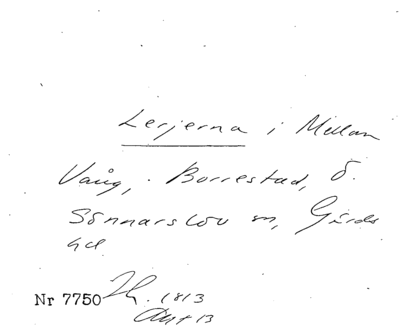 Lerjerna i Mellan
Vång, Borrestad, Ö.
Sönnarslöv sn, Gärds
hd.
Nr 7750 1813
Akt 13